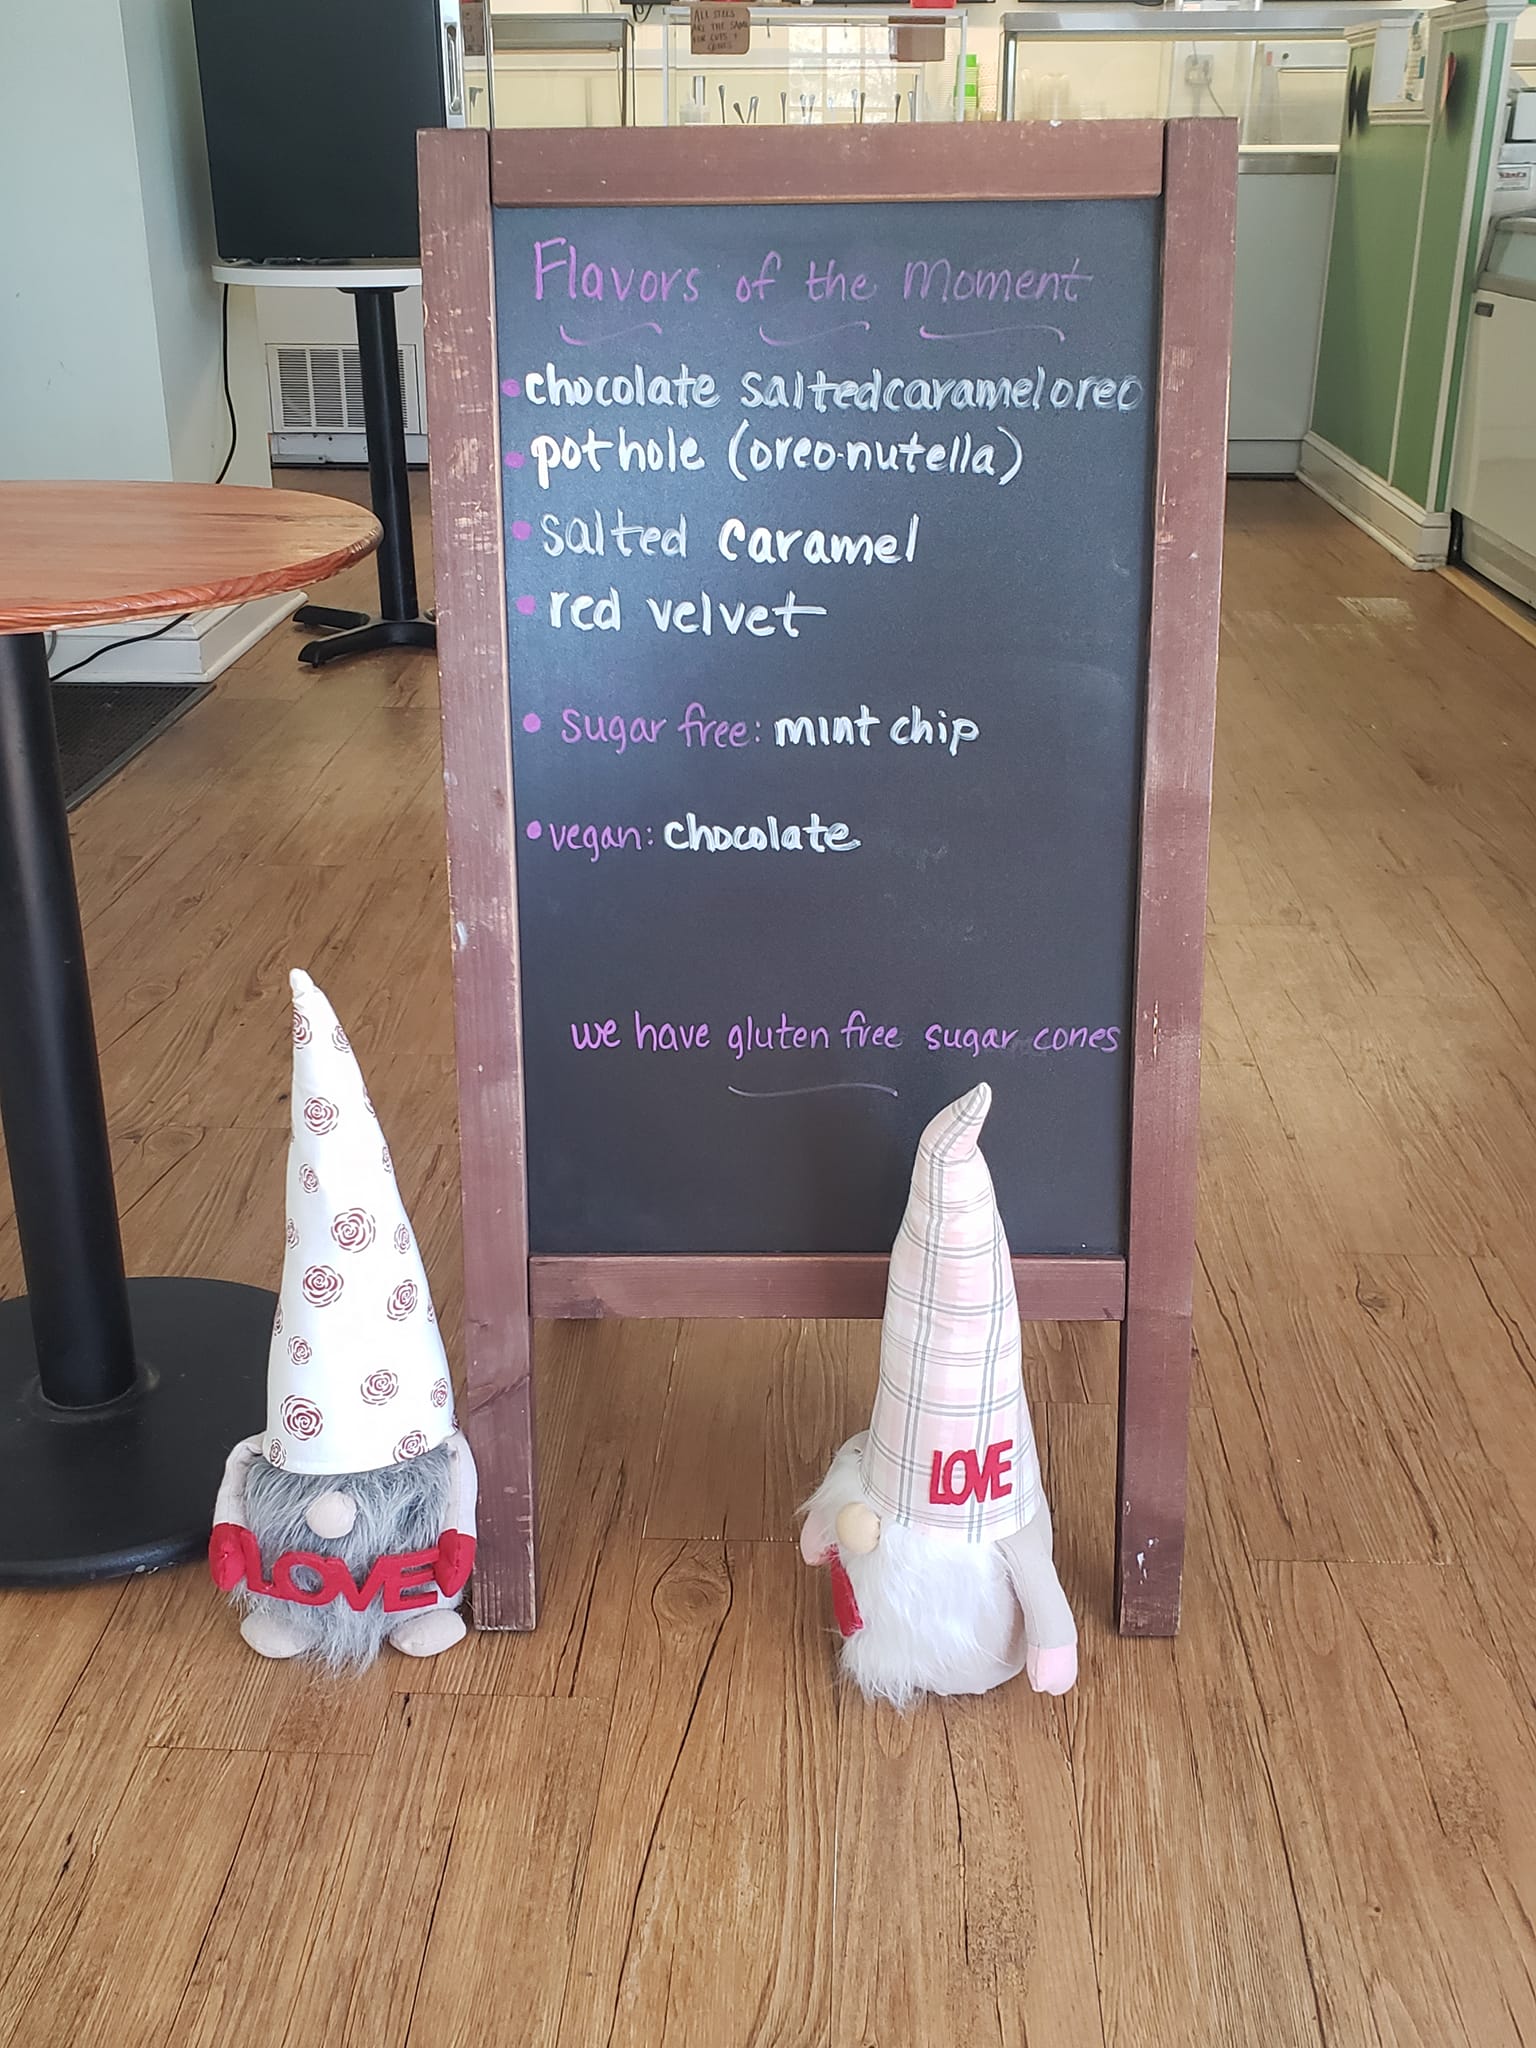 ALL SIZES
ARE THE SAME
FOR CUPS +
CONES
Flavors of the Moment
• chocolate saltedcarameloreo
• pothole (oreo-nutella)
• salted caramel
• red velvet
• sugar free: mint chip
• vegan: chocolate
we have gluten free sugar cones
LOVE
LOVE